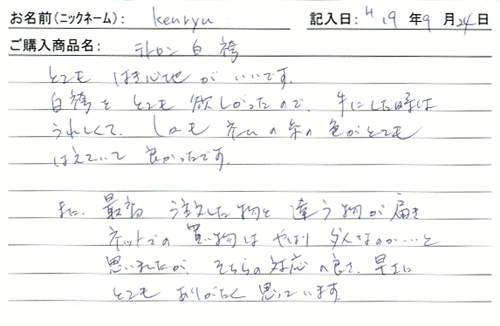 お名前(ニックネーム): kenryu 記入日: H19年9月24日
ご購入商品名: テトロン白袴
とても はき心地が いいです。
白袴を とても 欲しかったので、手にした時は
うれしくて、しかも ネームの糸の色がとても
はえていて 良かったです。
また、最初 注文した物と 違う物が届き
ネットでの 買い物は やはり ダメなのか…と
思いましたが、そちらの対応の良さ、早さに
とても ありがたく 思っています。